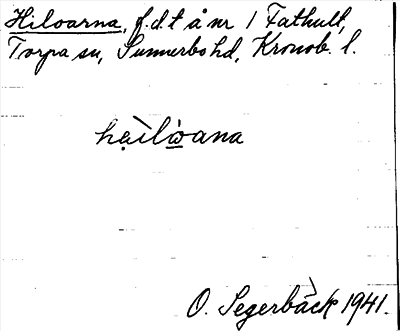 Hiloarna, f.d.t å nr 1 Fathult,
Torpa sn, Sunnerbo hd, Kronob. l.
hạìlὼana
O. Segerbäck 1941.